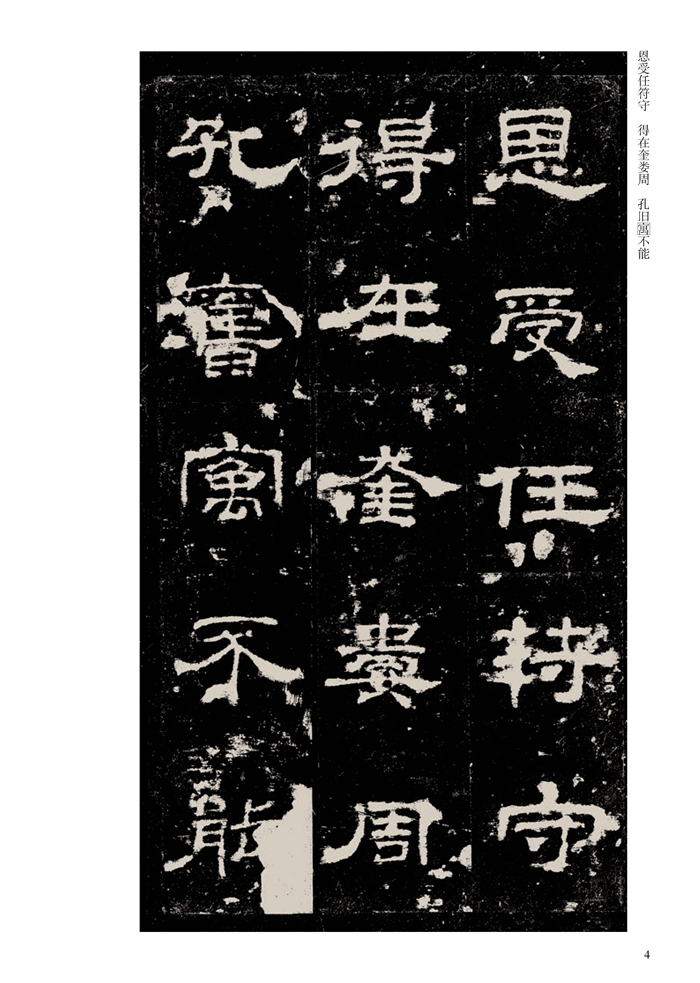 恩受任符守　得在奎娄周　孔旧寓不能
恩受任符守
得在奎婁周
孔舊寓不能
4